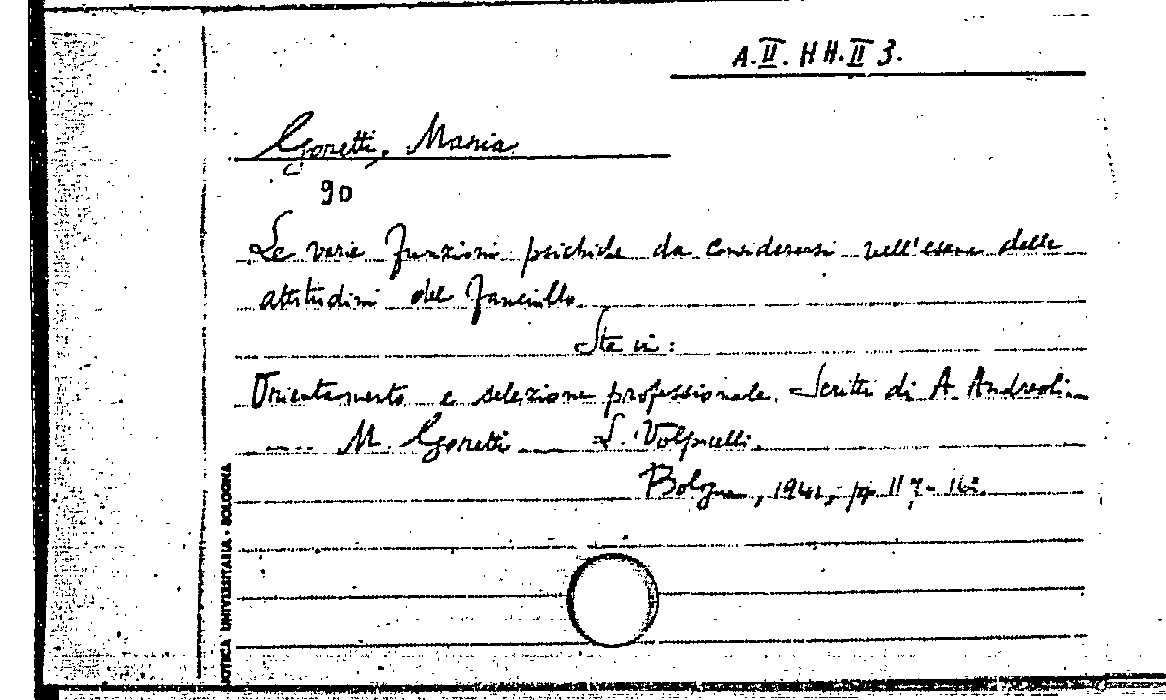 A.II. HH.II 3.
Goretti, Maria
90
Le varie funzioni psichiche da considerarsi nell'esame delle
attitudini del fanciullo.
Sta in:
Orientamento e selezione professionale. Scritti di A. Andreoli...
.... M. Goretti ... L. Volpicelli.
Bologna, 1941, pp 117-
OTECA UNIVERSITARIA - BOLOGNA